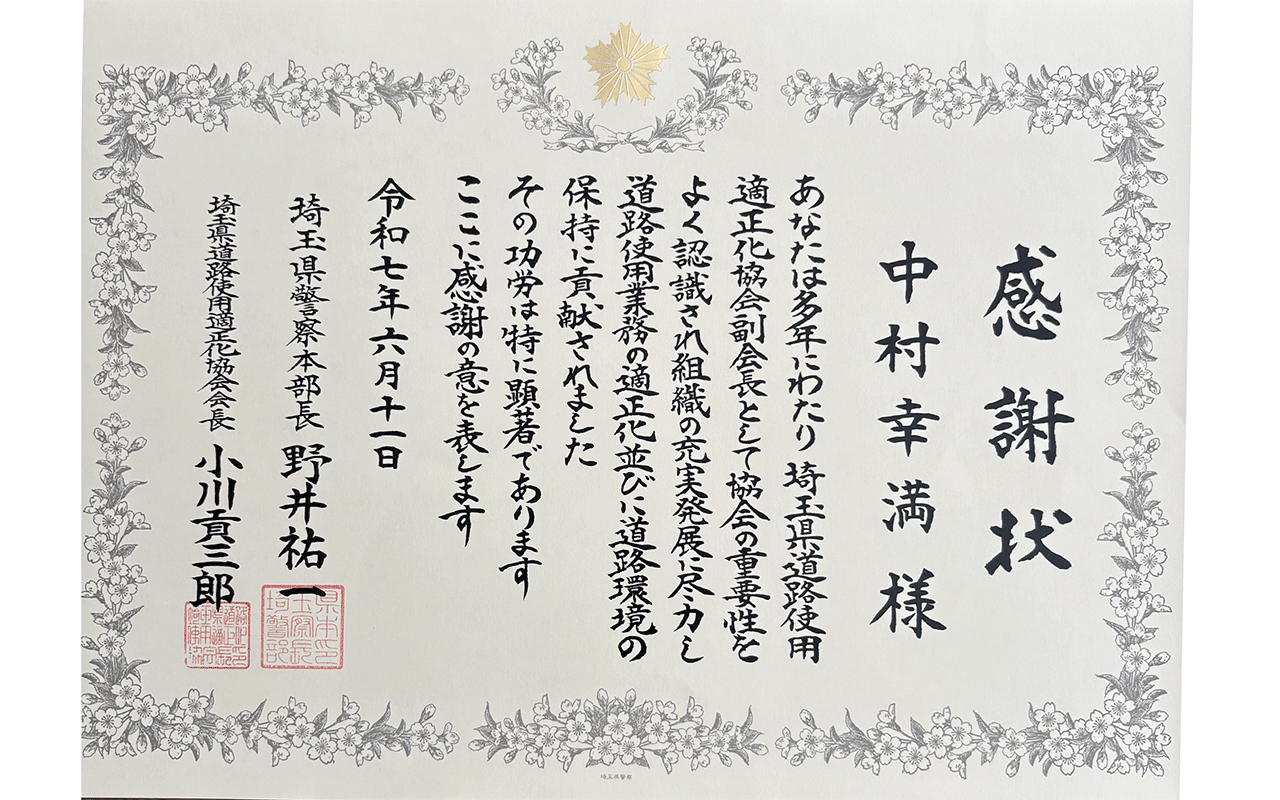 感謝状
中村幸満様
あなたは多年にわたり埼玉県道路使用
適正化協会副会長として協会の重要性を
よく認識され組織の充実発展に尽力し
道路使用業務の適正化並びに道路環境の
保持に貢献されました
その功労は特に顕著であります
ここに感謝の意を表します
令和七年六月十一日
埼玉県警察本部長 野井祐一
埼玉県道路使用適正化協会会長 小川貢三郎
埼玉県警察